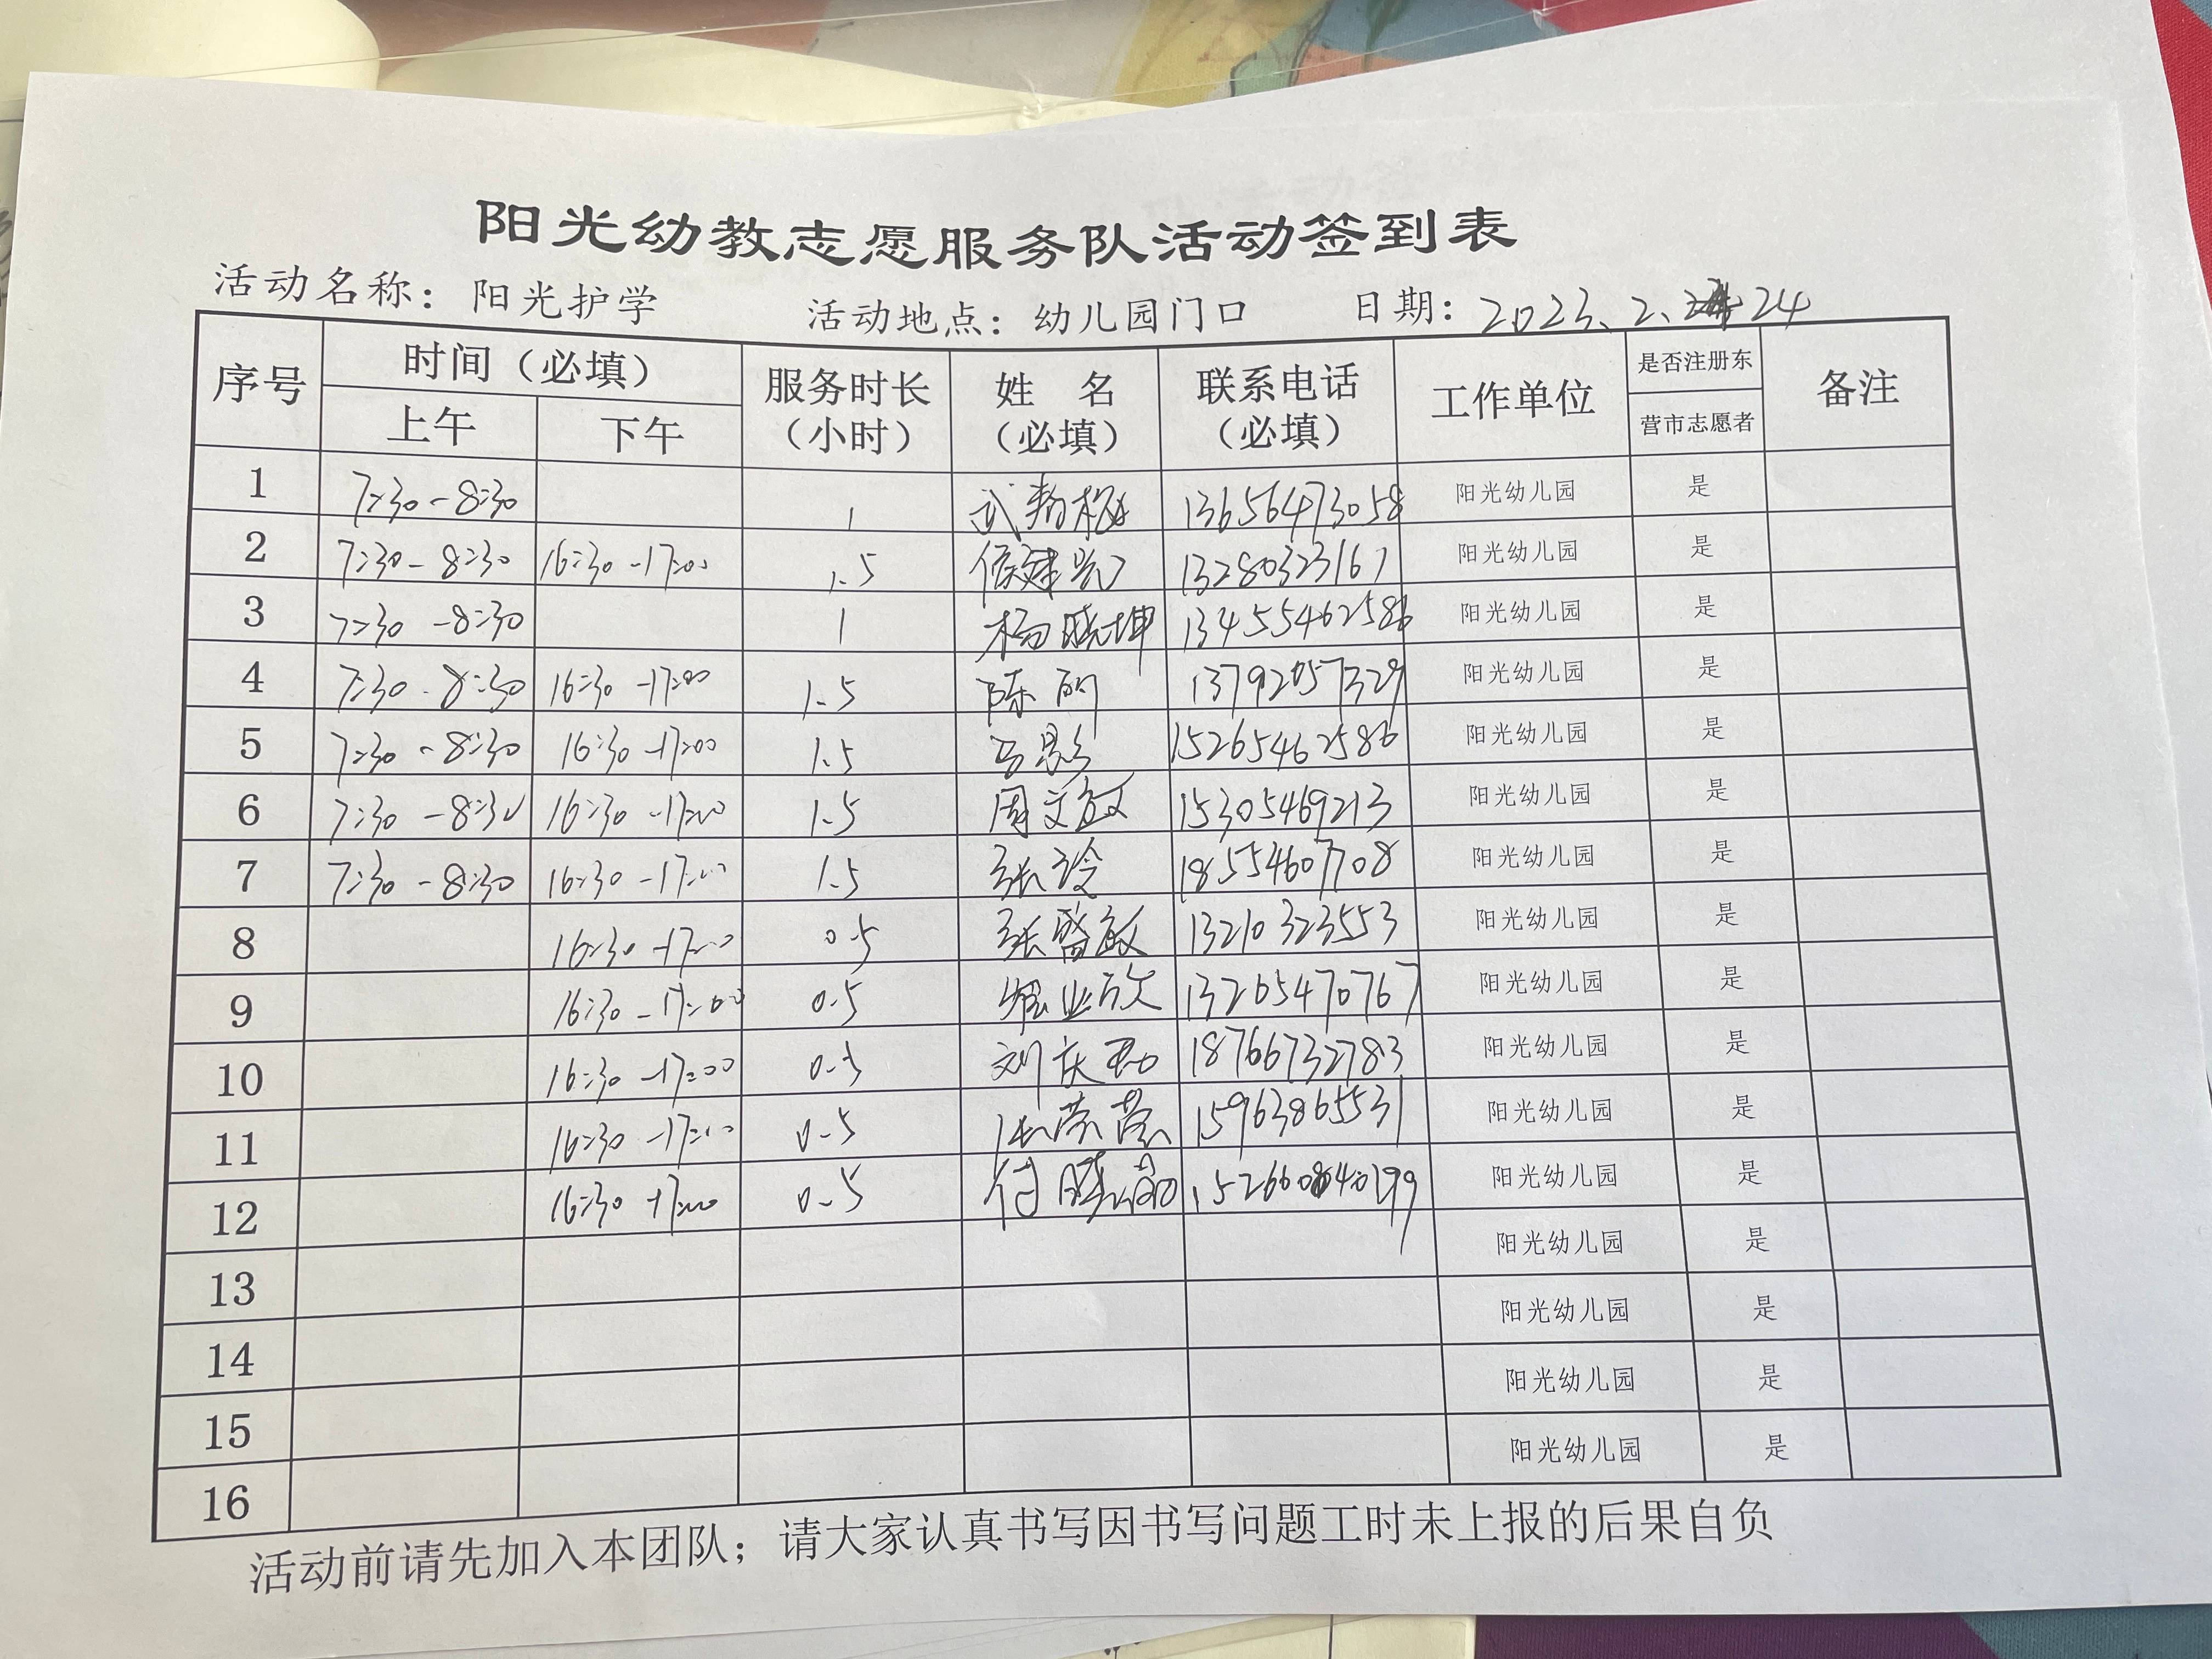 阳光幼教志愿服务队活动签到表
活动名称：阳光护学 活动地点：幼儿园门口 日期：2023.2.24
序号 时间（必填） 服务时长（小时） 姓 名（必填） 联系电话（必填） 工作单位 是否注册东营市志愿者 备注
上午 下午
1 7:30-8:30 1 武翰 13656473058 阳光幼儿园 是
2 7:30-8:30 16:30-17:00 1.5 侯建 13280323161 阳光幼儿园 是
3 7:30-8:30 1 杨晓坤 13455462586 阳光幼儿园 是
4 7:30-8:30 16:30-17:00 1.5 陈 13792057329 阳光幼儿园 是
5 7:30-8:30 16:30-17:00 1.5 15265462586 阳光幼儿园 是
6 7:30-8:30 16:30-17:00 1.5 周文敏 15305469213 阳光幼儿园 是
7 7:30-8:30 16:30-17:00 1.5 张玲 18554607708 阳光幼儿园 是
8 16:30-17:00 0.5 张 敏 13210323553 阳光幼儿园 是
9 16:30-17:00 0.5 13265470767 阳光幼儿园 是
10 16:30-17:00 0.5 刘庆 18766732783 阳光幼儿园 是
11 16:30-17:00 0.5 15963865531 阳光幼儿园 是
12 16:30-17:00 0.5 付晓 阳光幼儿园 是
13 阳光幼儿园 是
14 阳光幼儿园 是
15 阳光幼儿园 是
16 阳光幼儿园 是
活动前请先加入本团队；请大家认真书写因书写问题工时未上报的后果自负